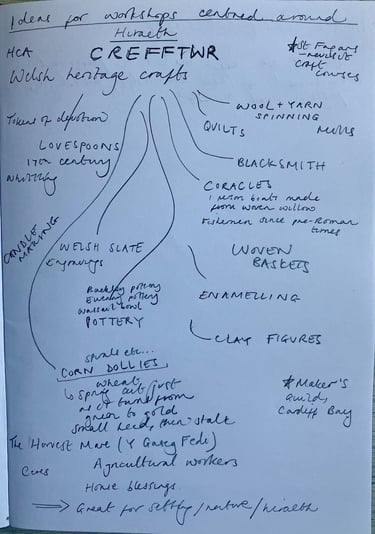 Ideas for workshops centred around
Hiraeth
HCA
CREFFTWR
* St Fagans
- newest
craft
courses
Welsh heritage crafts
Tokens of devotion
WOOL + YARN
SPINNING
QUILTS
Mills
LOVESPOONS
17th century
Whittling
BLACKSMITH
CORACLES
1 person boats made
from woven willow
Fishermen since pre-Roman
times
CANDLE
MAKING
WELSH SLATE
Engravings
WOVEN
BASKETS
Buckley pottery
Ewenny pottery
Wassail bowl
POTTERY
ENAMELLING
CLAY FIGURES
spirals etc...
CORN DOLLIES
wheat
spring cut just
as it turns from
green to gold
small head, thin stalk
* Maker's
Guild,
Cardiff Bay
The Harvest Mare (Y Gaseg Fedi)
Agricultural workers
Ceres
House blessings
⇒ Great for setting/nature/hiraeth